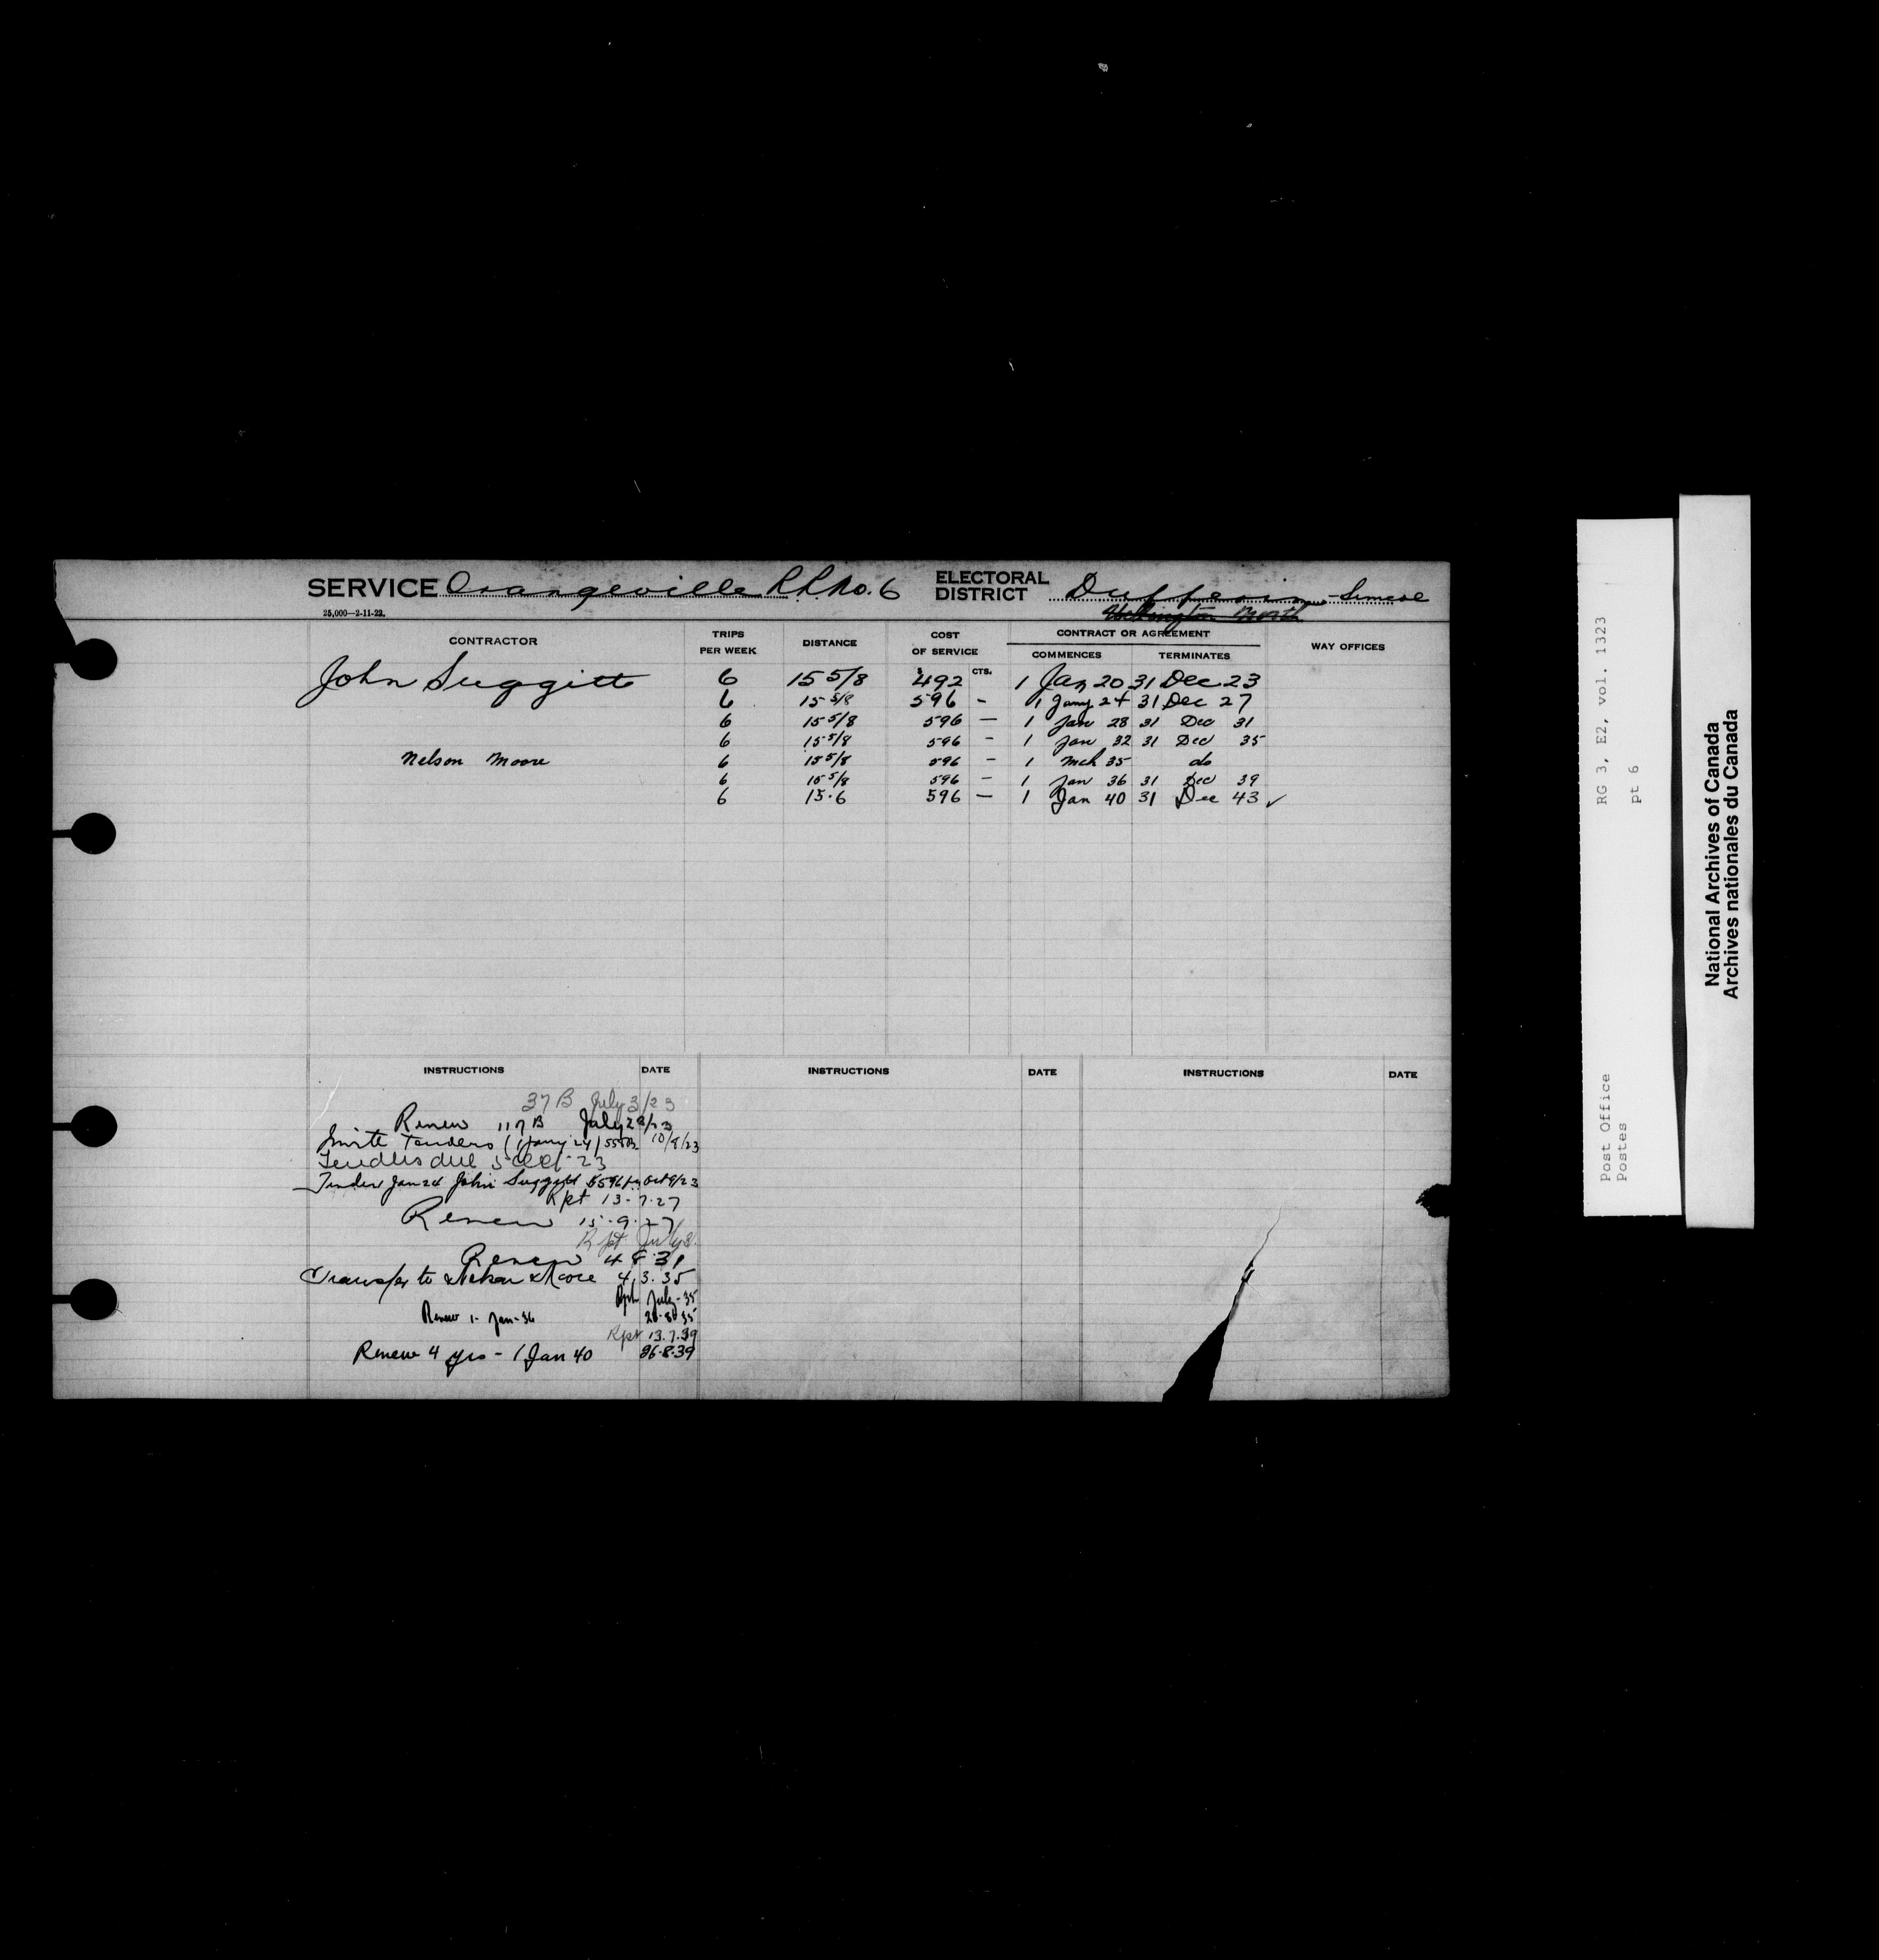 SERVICE Orangeville R.R. No. 6 ELECTORAL DISTRICT Dufferin - Simcoe
Wellington North
25,000—2-11-22.
CONTRACTOR TRIPS PER WEEK DISTANCE COST OF SERVICE CONTRACT OR AGREEMENT WAY OFFICES
COMMENCES TERMINATES
$ CTS.
John Suggitt 6 15 5/8 492 1 Jan 20 31 Dec 23
6 15 5/8 596 - 1 Jany 24 31 Dec 27
6 15 5/8 596 — 1 Jan 28 31 Dec 31
6 15 5/8 596 - 1 Jan 32 31 Dec 35
Nelson Moore 6 15 5/8 596 - 1 Mch 35 do
6 15 5/8 596 - 1 Jan 36 31 Dec 39
6 15.6 596 — 1 Jan 40 31 Dec 43 ✓
INSTRUCTIONS DATE INSTRUCTIONS DATE INSTRUCTIONS DATE
37 B July 3/23
Renew 117 B July 28/23
Invite Tenders (1 Jany 24) 10/8/23
Tenders due 5 Oct 23
Tender Jan 24 John Suggitt $596 Oct 9/23
Rpt 13-7-27
Renew 15-9-27
Rpt July
Renew 4 8 31
Transfer to Nelson Moore 4.3.35
Rpt July-35
Renew 1- Jan-36 -35
Rpt 13.7.39
Renew 4 yrs - 1 Jan 40 26.8.39
RG 3, E2, vol. 1323
pt 6
Post Office
Postes
National Archives of Canada
Archives nationales du Canada